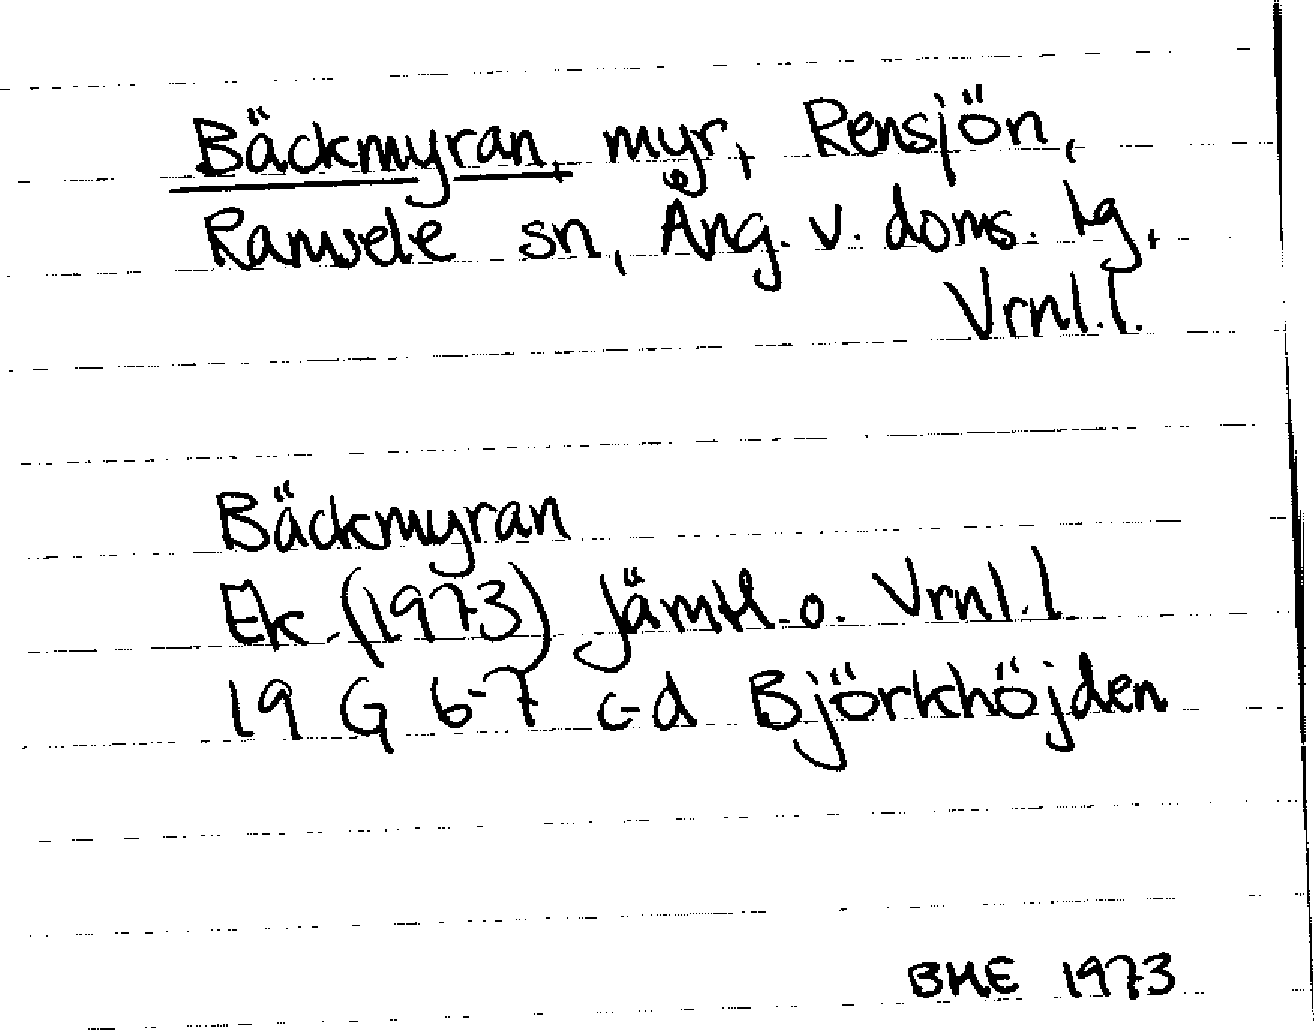 Bäckmyran, myr, Rensjön,
Ramsele sn, Ång. v. doms. tg,
Vrnl.l.
Bäckmyran
Ek (1973) Jämtl. o. Vrnl.l
19 G 6-7 c-d Björkhöjden
BHE 1973